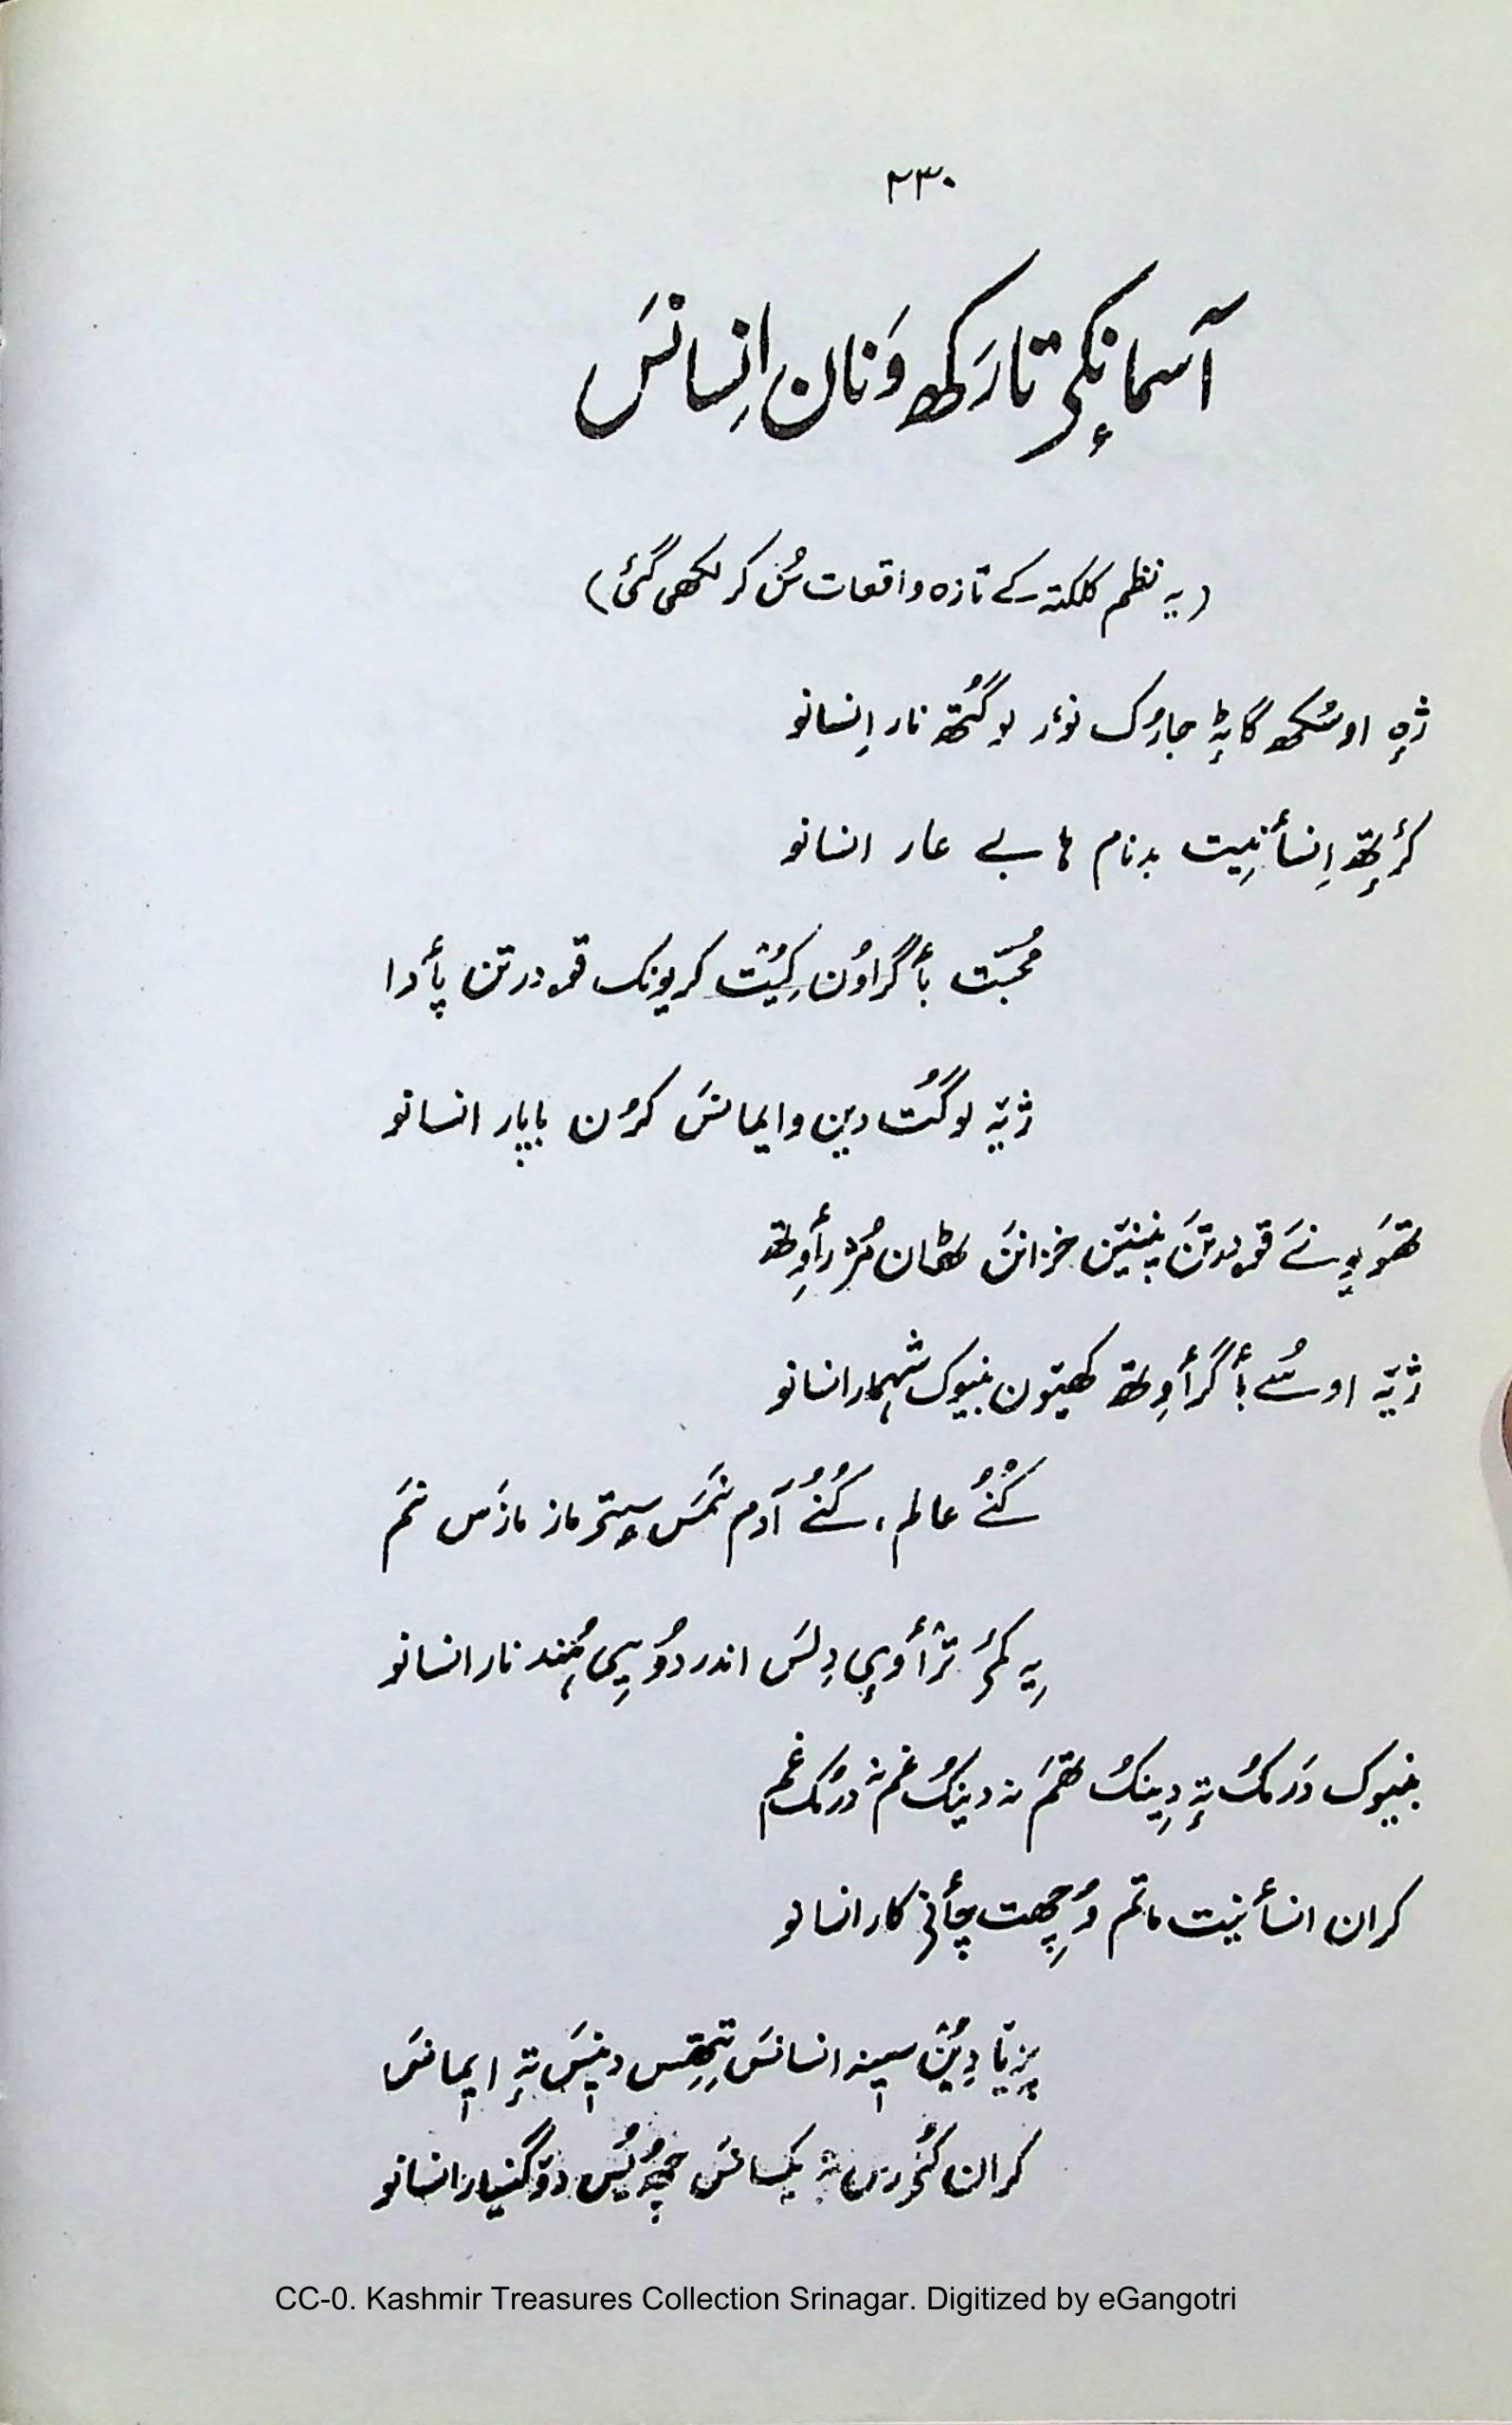 ۲۳۰
آسمانٕکۍ تارَکھ وَنان اِنسانسَ
(یہ نظم کلکتہ کے تازہ واقعات سُن کر لکھی گئی)
ژٕہ اوسُکھ گاٹہٕ جارُک نوٗر لوگُتھ نار اِنسانو
کٔرِتھ اِنسأنِیت بدنام ہا بے عار انسانو
مُحبّت بأگراوُن کیُت کریونک قۄدرتن پأدا
ژیّہ لوگُت دین و ایمانسَ کرُن باپار انسانو
تھَو یِنے قۄدرتَن پننیَن خزانن ٹھان مُژرأوِتھ
ژیّہ اوسُے بأگرأوِتھ کھیون بنیوک شہمار انسانو
کُنُے عالم، کُنُے آدم نمَس سٟتۍ ماز مازَس نم
یِہ کٔمۍ ترٛأوۍ دِلسَ اندر دُویی ہُند نار انسانو
بنیوک دَرمُک تہٕ دِینُک تھمَ نہ دینُک غم نہٕ درمُک غم
کران انسأنیت ماتم وُچھِت چأنۍ کار انسانو
پزیا دیُن سیٖنہ انسانسَ تِتھِس دیٖنسَ تہٕ ایٖمانسَ
کران کُنۍرس نہٕ یکسانسَ چھُ یُس دۄگنیار انسانو
CC-0. Kashmir Treasures Collection Srinagar. Digitized by eGangotri